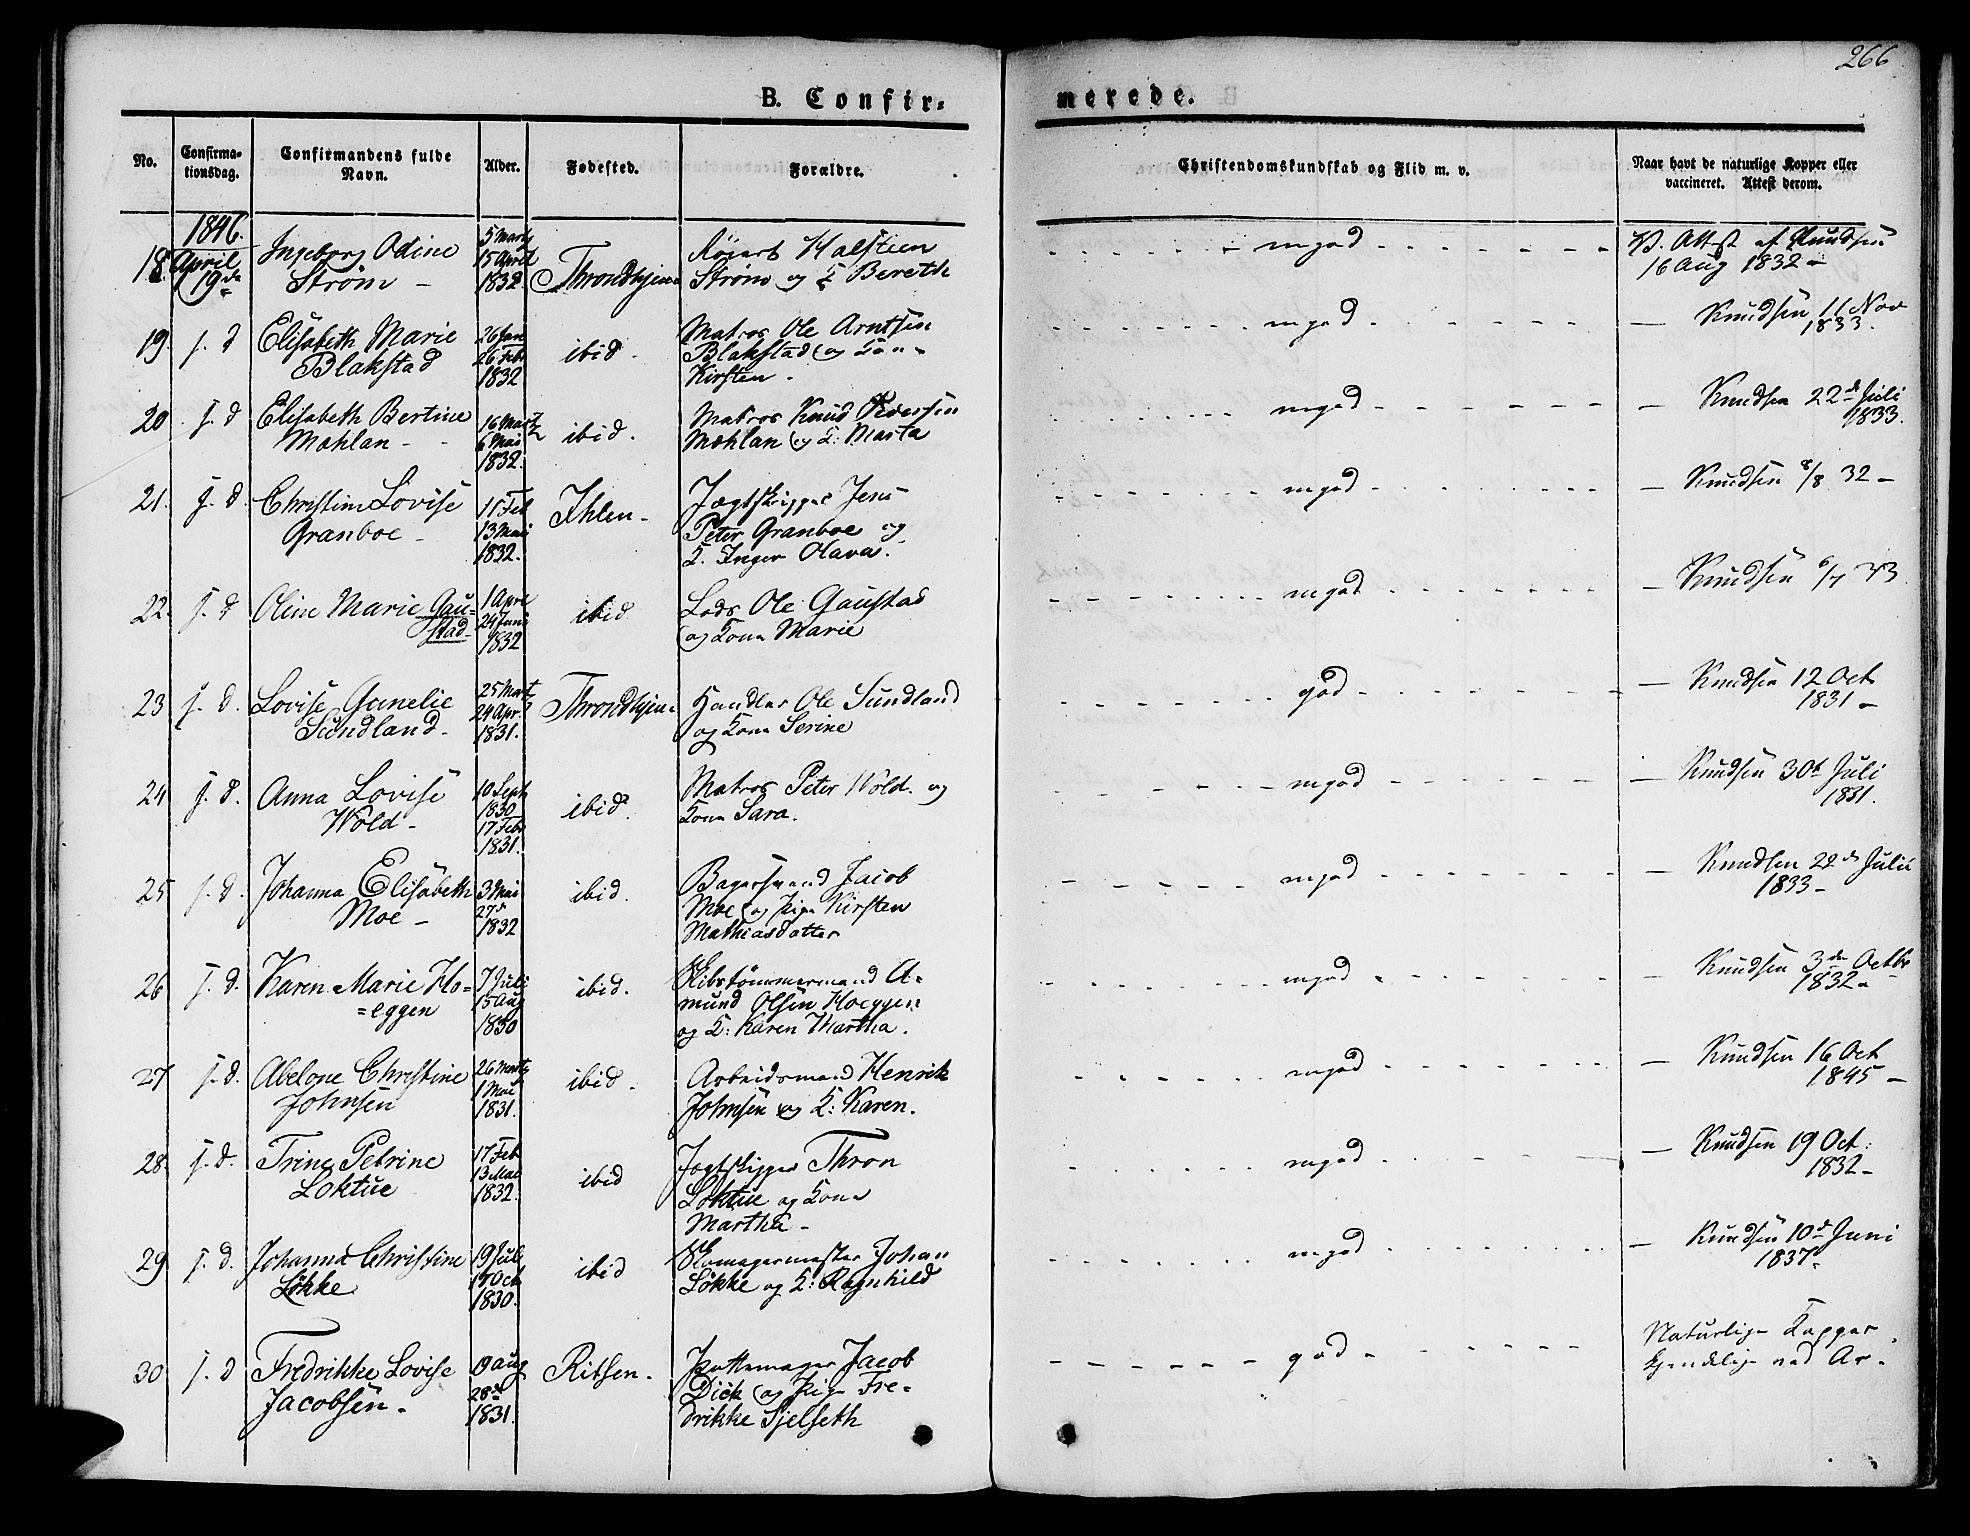 266
B. Confir=
merede.
No.
Confirma-
tionsdag.
Confirmandens fulde
Navn.
Alder.
Fødested.
Forældre.
Christendomskundskab og Flid m. v.
Naar havt de naturlige Kopper eller
vaccineret. Attest derom.
1846.
18 April
19de
Ingeborg Odine
Strøm -
5 Marts
15 April
1832.
Throndhjem
Halsteen
Strøm og K Bereth
mgod
V. Attst af Knudsen
16 Aug 1832 -
19. j. d
Elisabeth Marie
Blakstad
26 Jan
26 Febr
1832
ibid.
Matros Ole Arntsen
Blakstad og Kone
Kirsten -
mgod
— Knudsen 11 Nov
1833.
20 j. d
Elisabeth Bertine
Mæhlan -
16 Marts
6 Mai
1832.
ibid.
Matros Knud Iversen
Mæhlan og K: Marta
mgod
— Knudsen 22d Juli
1833.
21. j. d.
Christine Lovise
Granboe -
11 Feb
13 Mai
1832.
Ihlen -
Jægtskipper Jens
Peter Granboe og
K. Inger Olava.
mgod
— Knudsen 8/8 32 -
22. j. d
Oline Marie Gau=
stad -
1 Apr
24 Juni
1832
ibid
Lods Ole Gaustad
og Kone Marie
mgod
— Knudsen 6/7 33
23 j. d.
Lovise Amelie
Sundland -
25 Mart
24 Apr.
1831.
Throndhjem
Handler Ole Sundland
og Kone Serine
god
— Knudsen 12 Oct
1831 -
24 j. d.
Anna Lovise
Wold -
10 Sept
1830
17 Febr
1831.
ibid.
Matros Peter Wold. og
Kone Sara.
mgod
— Knudsen 30t Juli
1831.
25 j. d.
Johanna Elisabeth
Moe -
3 Mai
27d
1832
ibid.
Bagersvend Jacob
Moe og Pige Kirsten
Mathiasdatter
mgod
— Knudsen 22d Julii
1833 -
26 j. d.
Karen Marie Ho=
=eggen
7 Juli
15 Aug
1830
ibid.
Skibstømmermand A=
mund Olsen Hoeggen
og K: Karen Martha.
mgod
— Knudsen 3de Octbr
1832 -
27 j. d.
Abelone Christine
Johnsen
26 Marts
1 Mai
1831.
ibid.
Arbeidsmand Henrik
Johnsen og K: Karen.
mgod
— Knudsen 16 Oct
1845 -
28. j. d.
Trine Petrine
Loktue
17 Feb
13 Mai
1832.
ibid
Jægtskipper Thron
Loktue og Kone
Martha -
mgod
— Knudsen 19 Oct:
1832 -
29 j. d.
Johanna Christine
Løkke
19 Juli
17 Oct
1830.
ibid
Skomagermester Johan
Løkke og K: Ragnhild
mgod
— Knudsen 10d Juni
1837.
30 j. d
Fredrikke Lovise
Jacobsen -
19 Aug
28de
1831.
Ritsen -
Pottemager Jacob
Dick og Pige Fre=
drikke Sjelseth
god
Naturlige Kopper
kjendelig ved Ar.